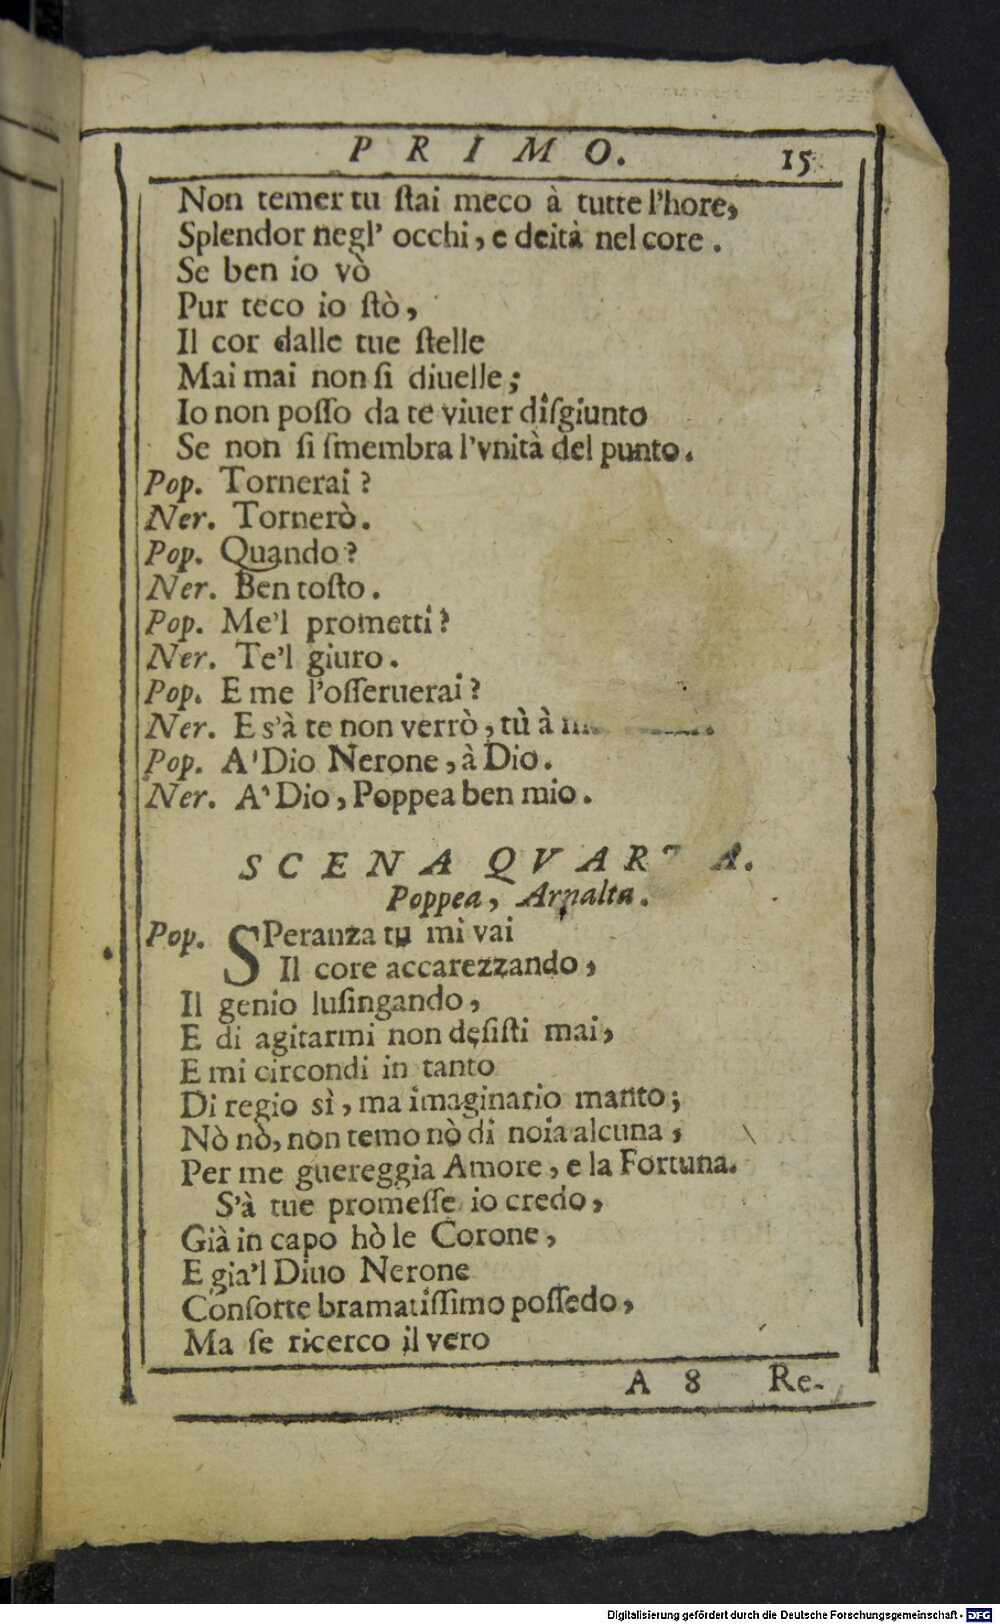 PRIMO. 15
Non temer tu ſtai meco à tutte l'hore,
Splendor negl' occhi, e deità nel core.
Se ben io vò
Pur teco io ſtò,
Il cor dalle tue ſtelle
Mai mai non ſi diuelle;
Io non poſſo da te viuer diſgiunto
Se non ſi ſmembra l'vnità del punto.
Pop. Tornerai?
Ner. Tornerò.
Pop. Quando?
Ner. Ben toſto.
Pop. Me'l prometti?
Ner. Te'l giuro.
Pop. E me l'oſſeruerai?
Ner. E s'à te non verrò, tù à
Pop. A' Dio Nerone, à Dio.
Ner. A' Dio, Poppea ben mio.
SCENA QVARTA.
Poppea, Arnalta.
Pop. SPeranza tu mi vai
Il core accarezzando,
Il genio luſingando,
E di agitarmi non deſiſti mai,
E mi circondi in tanto
Di regio sì, ma imaginario manto;
Nò nò, non temo nò di noia alcuna,
Per me guereggia Amore, e la Fortuna.
S'à tue promeſſe io credo,
Già in capo hò le Corone,
E gia'l Diuo Nerone
Conſorte bramatiſſimo poſſedo,
Ma ſe ricerco il vero
A 8 Re-
Digitalisierung gefördert durch die Deutsche Forschungsgemeinschaft - DFG